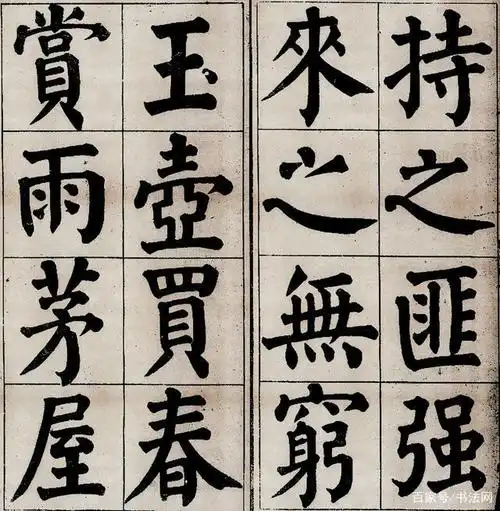 持之匪强
來之無窮
玉壺買春
賞雨茅屋
百家号/书法网